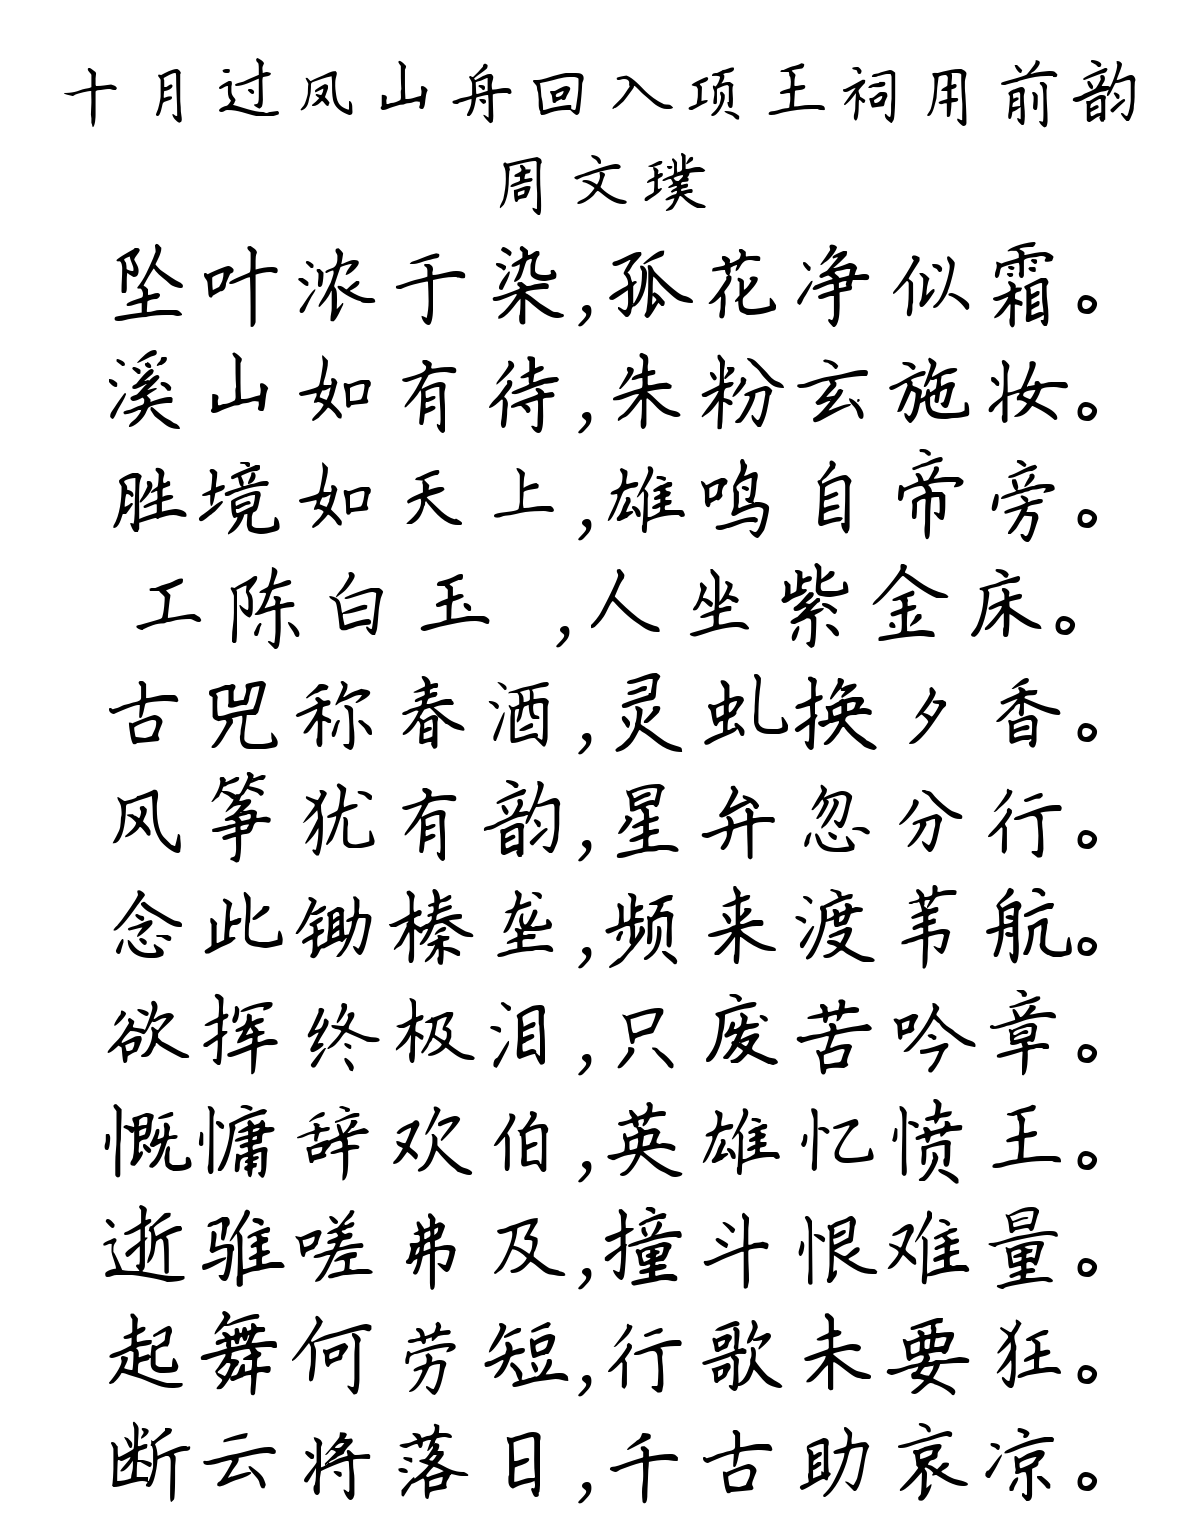 十月过凤山舟回入项王祠用前韵
周文璞
坠叶浓于染,孤花净似霜。
溪山如有待,朱粉玄施妆。
胜境如天上,雄鸣自帝旁。
工陈白玉 ,人坐紫金床。
古兕称春酒,灵虬换夕香。
风筝犹有韵,星弁忽分行。
念此锄榛垄,频来渡苇航。
欲挥终极泪,只废苦吟章。
慨慵辞欢伯,英雄忆愤王。
逝骓嗟弗及,撞斗恨难量。
起舞何劳短,行歌未要狂。
断云将落日,千古助哀凉。